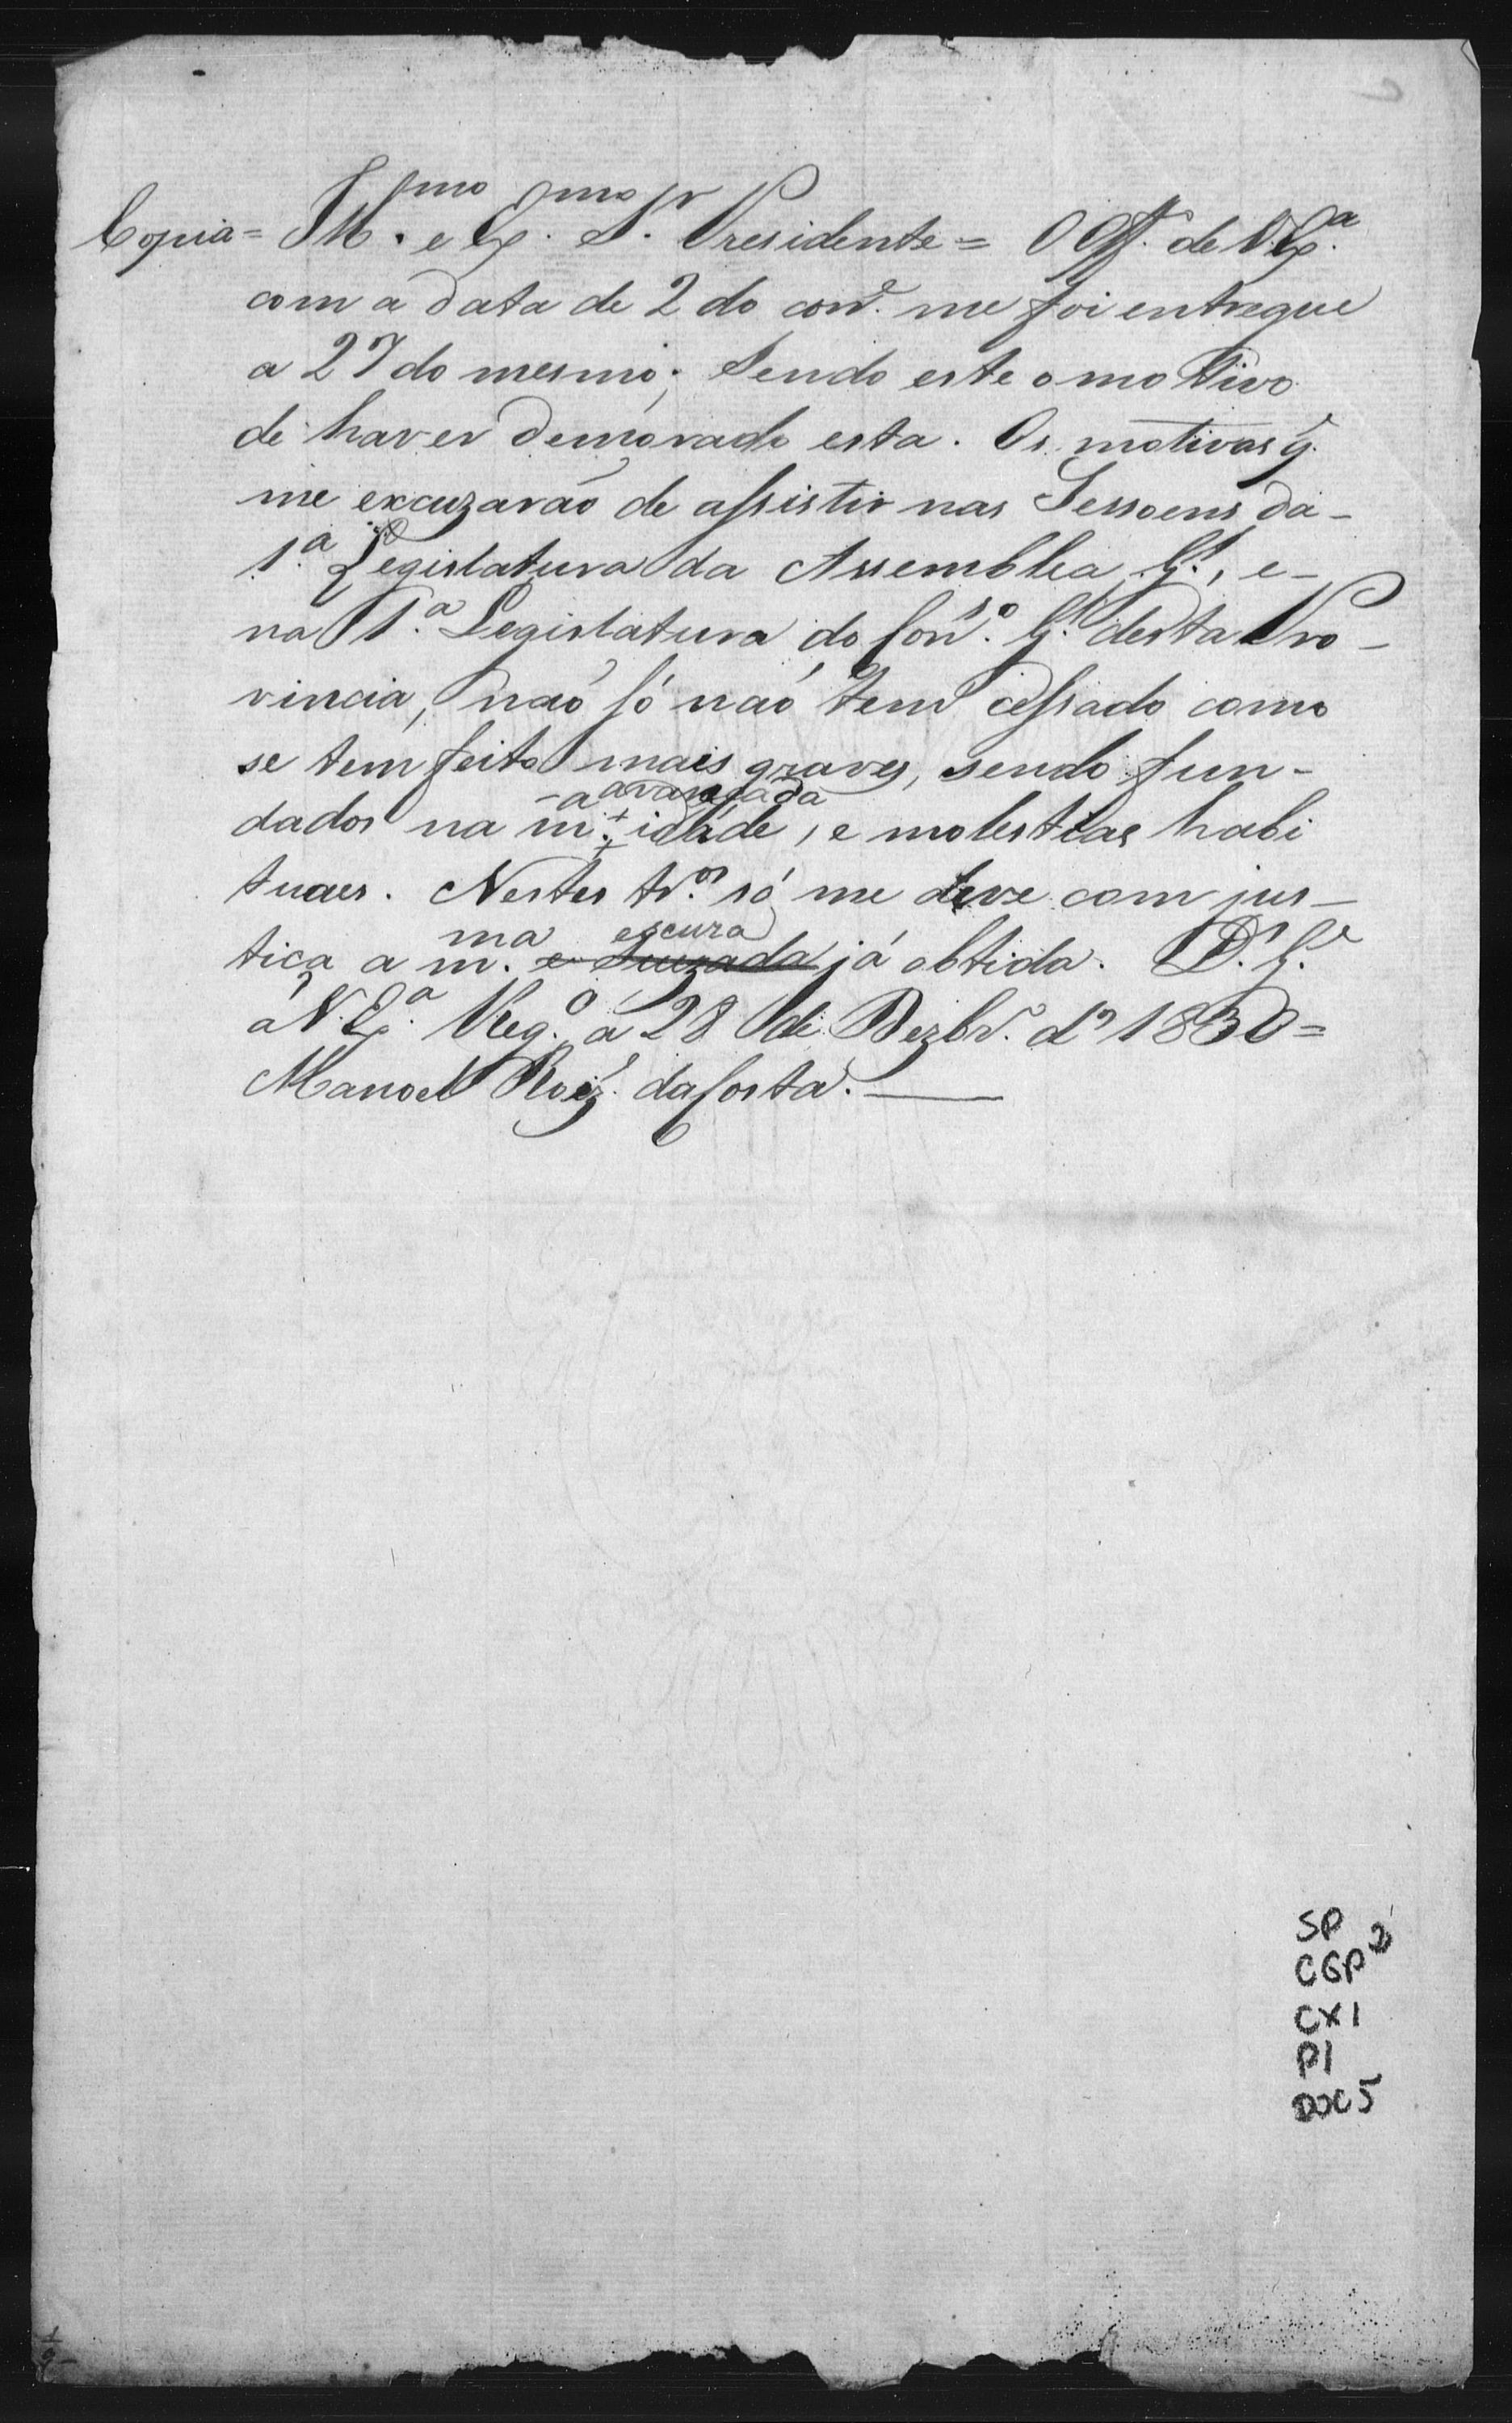 Copia = Illmo. e Exmo. Sr. Presidente = O Off. de V. Exa.
com a data de 2 do corre. me foi entregue
a 27 do mesmo; Sendo este o motivo
de haver demorado esta. Os motivos q.
me excuzarão de assistir nas Sessoens da-
1.a Legislatura da Assemblea G.l, e-
na 1.a Legislatura do Conso. G.l desta Pro-
vincia, naó só naó tem cessado como
se tem feito mais graves, sendo fun-
dados na m.a avançada idade, e molestias habi
tuaes. Nestes tr.os só me deve com jus-
tiça a m.ma escuza já obtida. D.s G.e
a V. Exa. Reg.o a 28 de Dezbro. de 1830 =
Manoel Roiz. da Costa. —
SP
CGP 2
CX1
P1
DOC 5